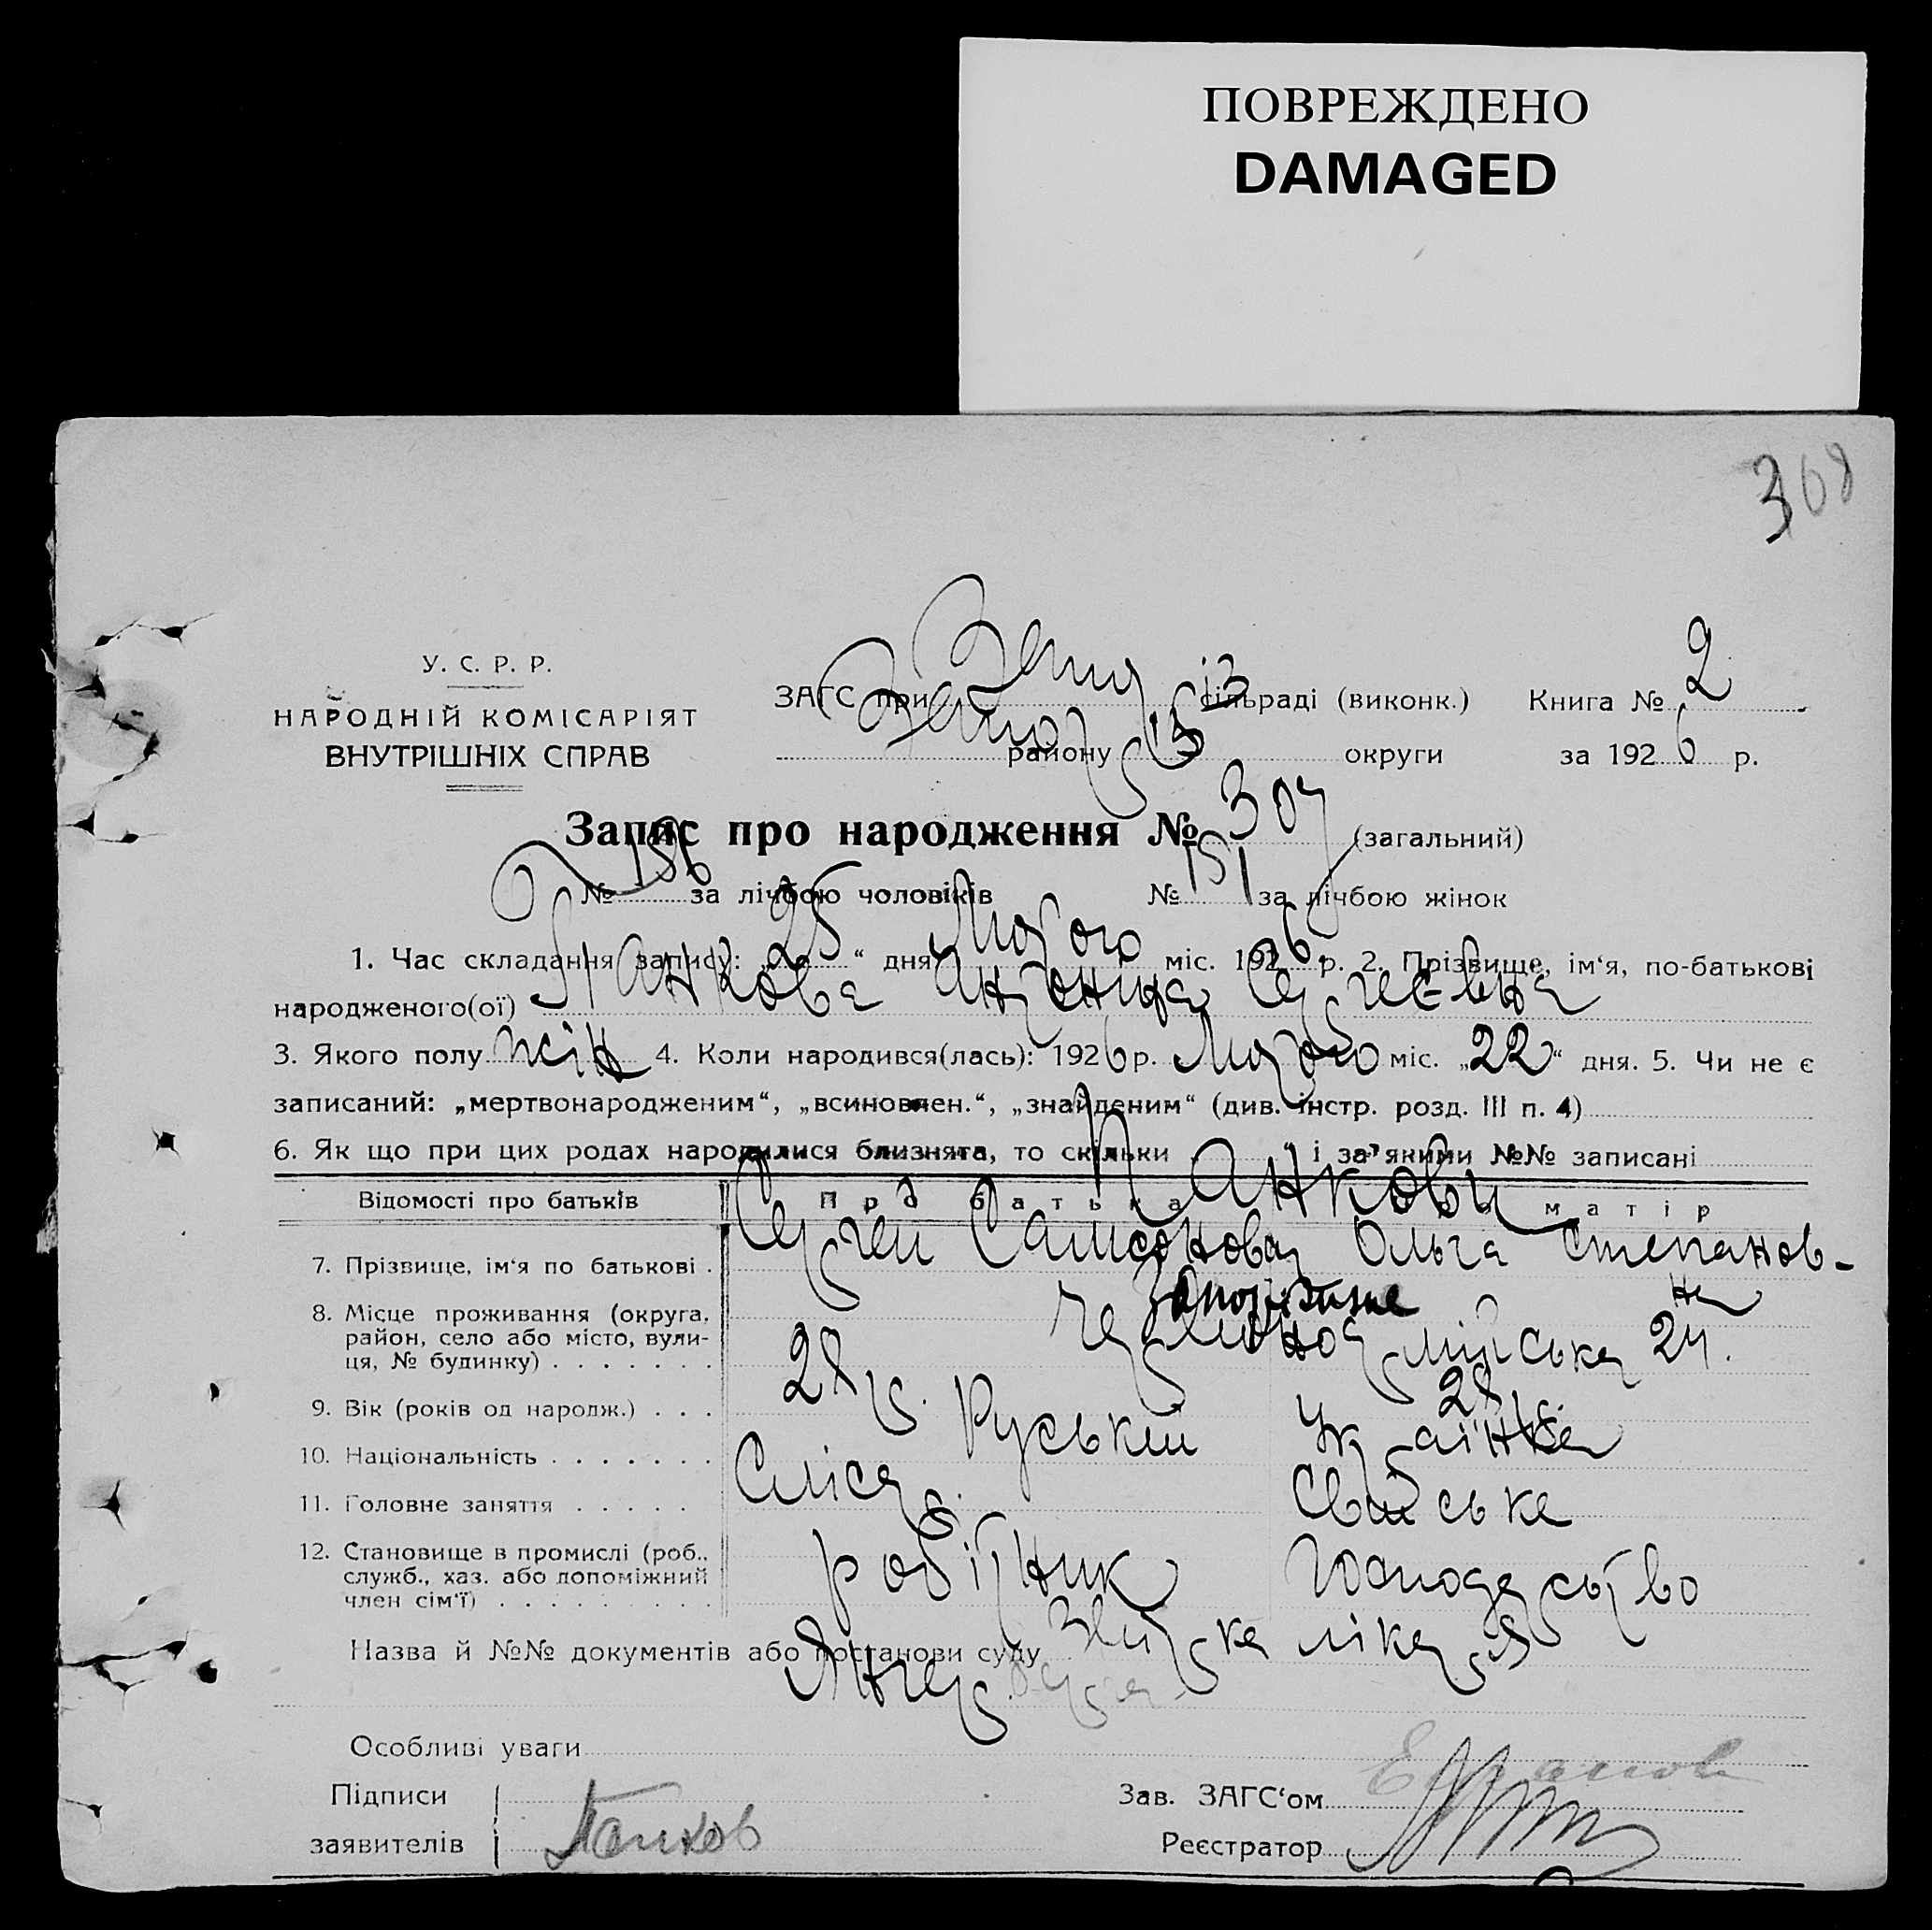 ПОВРЕЖДЕНО
DAMAGED
308
У. С. Р. Р.
НАРОДНІЙ КОМІСАРІЯТ
ВНУТРІШНІХ СПРАВ
ЗАГС при сільраді (виконк.) Книга № 2
району округи за 1926 р.
Запис про народження № 307 (загальний)
№ 156 за лічбою чоловіків № 151 за лічбою жінок
1. Час складання запису: „25“ дня Лютого міс. 1926 р. 2. Прізвище, ім‘я, по-батькові
народженого(ої) Панкова Антонина Сергеевна
3. Якого полу жін 4. Коли народився(лась): 1926 р. Лютого міс. „22“ дня. 5. Чи не є
записаний: „мертвонародженим“, „всиновлен.“, „знайденим“ (див. інстр. розд. III п. 4)
6. Як що при цих родах народилися близнята, то скільки „ “ і за якими №№ записані
Панкови
Відомості про батьків Про батька матір
7. Прізвище, ім‘я по батькові . Сергей Самсонов Ольга Степанов-
на
8. Місце проживання (округа, Запоріжже
район, село або місто, вули-
ця, № будинку) . . . . . . . Червоноармійська 24.
9. Вік (років од народж.) . . . 28 р. 28 р.
10. Національність . . . . . . . Руський Українка
11. Головне заняття . . . . . Слюсар. Свійське
12. Становище в промислі (роб.,
служб., хаз. або допоміжний робітник господарство
член сім‘ї) . . . . . . . . .
Назва й №№ документів або постанови суду лікаря
Особливі уваги
Підписи Зав. ЗАГС‘ом
заявителів Панков Реєстратор